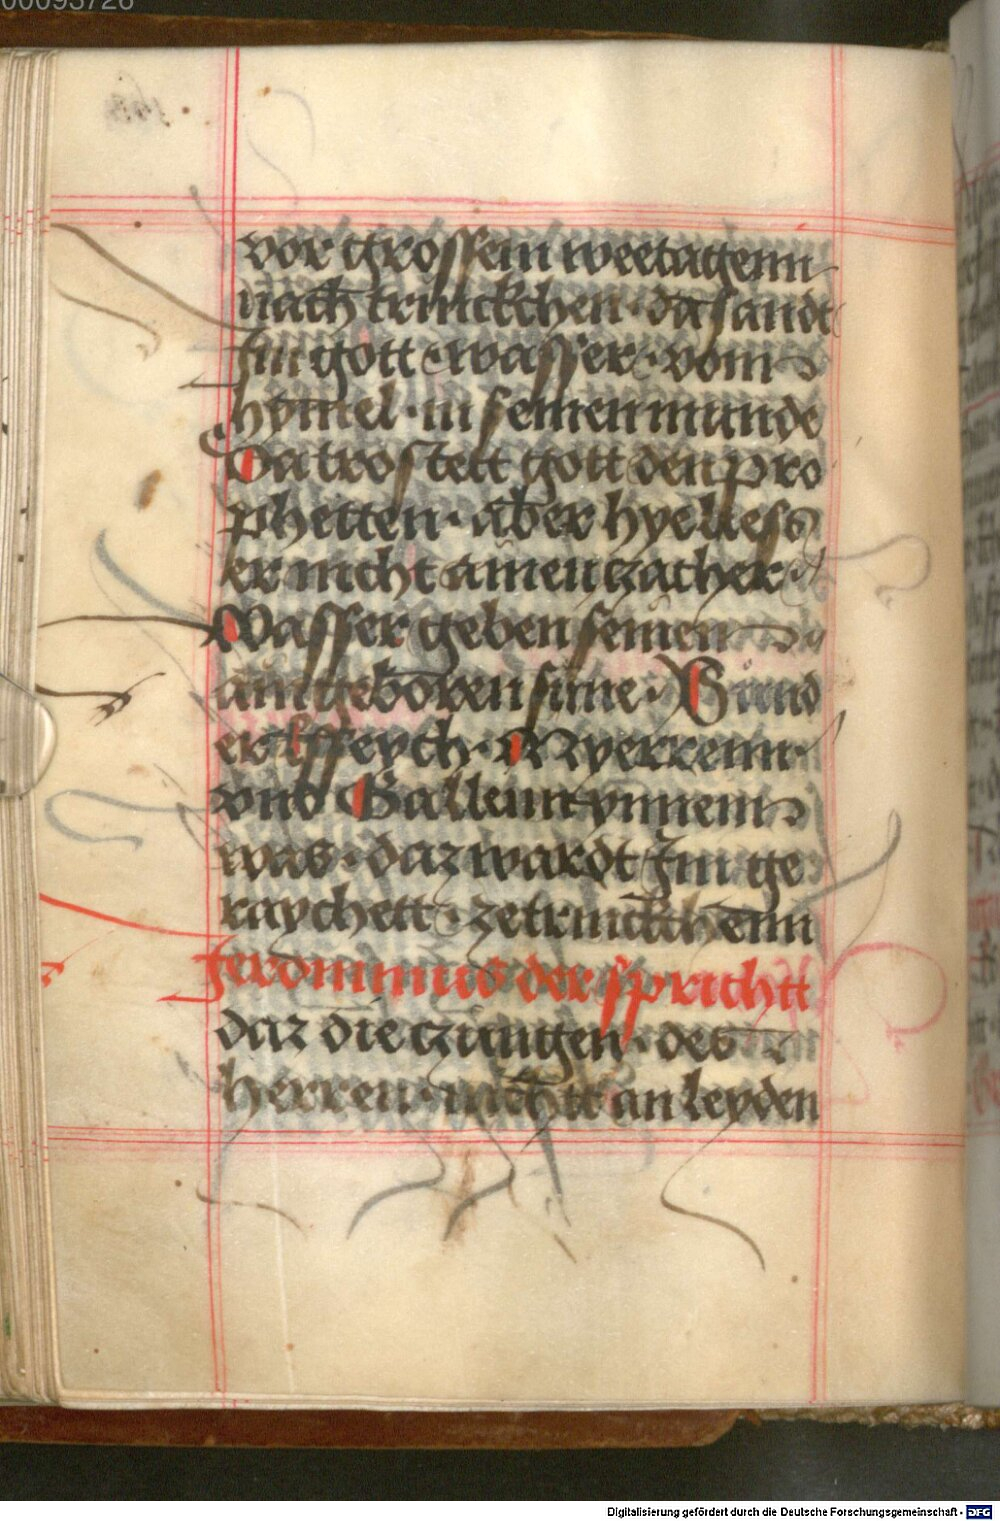 00093726
vor grossem weetagenn
nach trinckchen · da sandt
Im gott · wasser · vom
hymel · in seinen munde
Da trostett gott den pro
phetten · aber hye liess
er nicht ainen zacher
Wasser geben seinen
aingeboren sune · Sund
er Esseych · Myerrenn
vnd Gallenn ynnem
was · daz wardt Im ge
raychett · zetrinckchenn
Jeronimus der sprichtt
daz die czungen · des
herren · nichtt an leyden
Digitalisierung gefördert durch die Deutsche Forschungsgemeinschaft - DFG